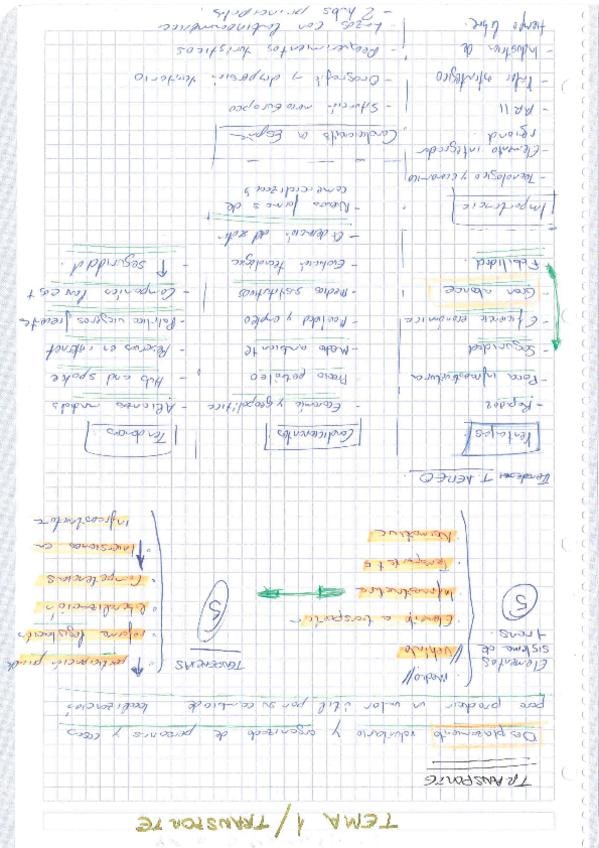 TEMA 1 / TRANSPORTE
TRANSPORTE
Desplazamiento voluntario y organizado de personas y cosas
para producir un valor útil por su cambio de localización
Elementos
sistema de
trans.
5
Medio //
Vehículo //
Elemento a transportar
Infraestructura
Transporte
Normativa
TENDENCIAS
5
↑ participación priv
reforma legislación
liberalización
competencias
↓ inversiones en
infraestructura
Tendencias T. AEREO
Ventajas
- Rapidez
- Poca infraestructura
- Seguridad
- Eficiencia económica
- Gran alcance
- Fiabilidad
Importancia
- Tecnológico y económico
- Elemento integrador
regional
- RR.II
- Valor estratégico
- Industria de
tiempo libre.
Condicionantes
- Economía y geopolítica
- Precio petróleo
- Medio ambiente
- Movilidad y empleo
- Medios sustitutivos
- Evolución tecnológica
- Nuevas formas de
comercialización
Condicionantes en España
- Situación marco europeo
- Orografía y dispersión territorio
- Requerimientos turísticos
- Lazos con Latinoamérica
- 2 hubs principales
Tendencias
- Alianzas mundiales
- Hub and spoke
- Reservas en internet
- Política viajeros frecuentes
- Compañías low cost
- ↑ seguridad.